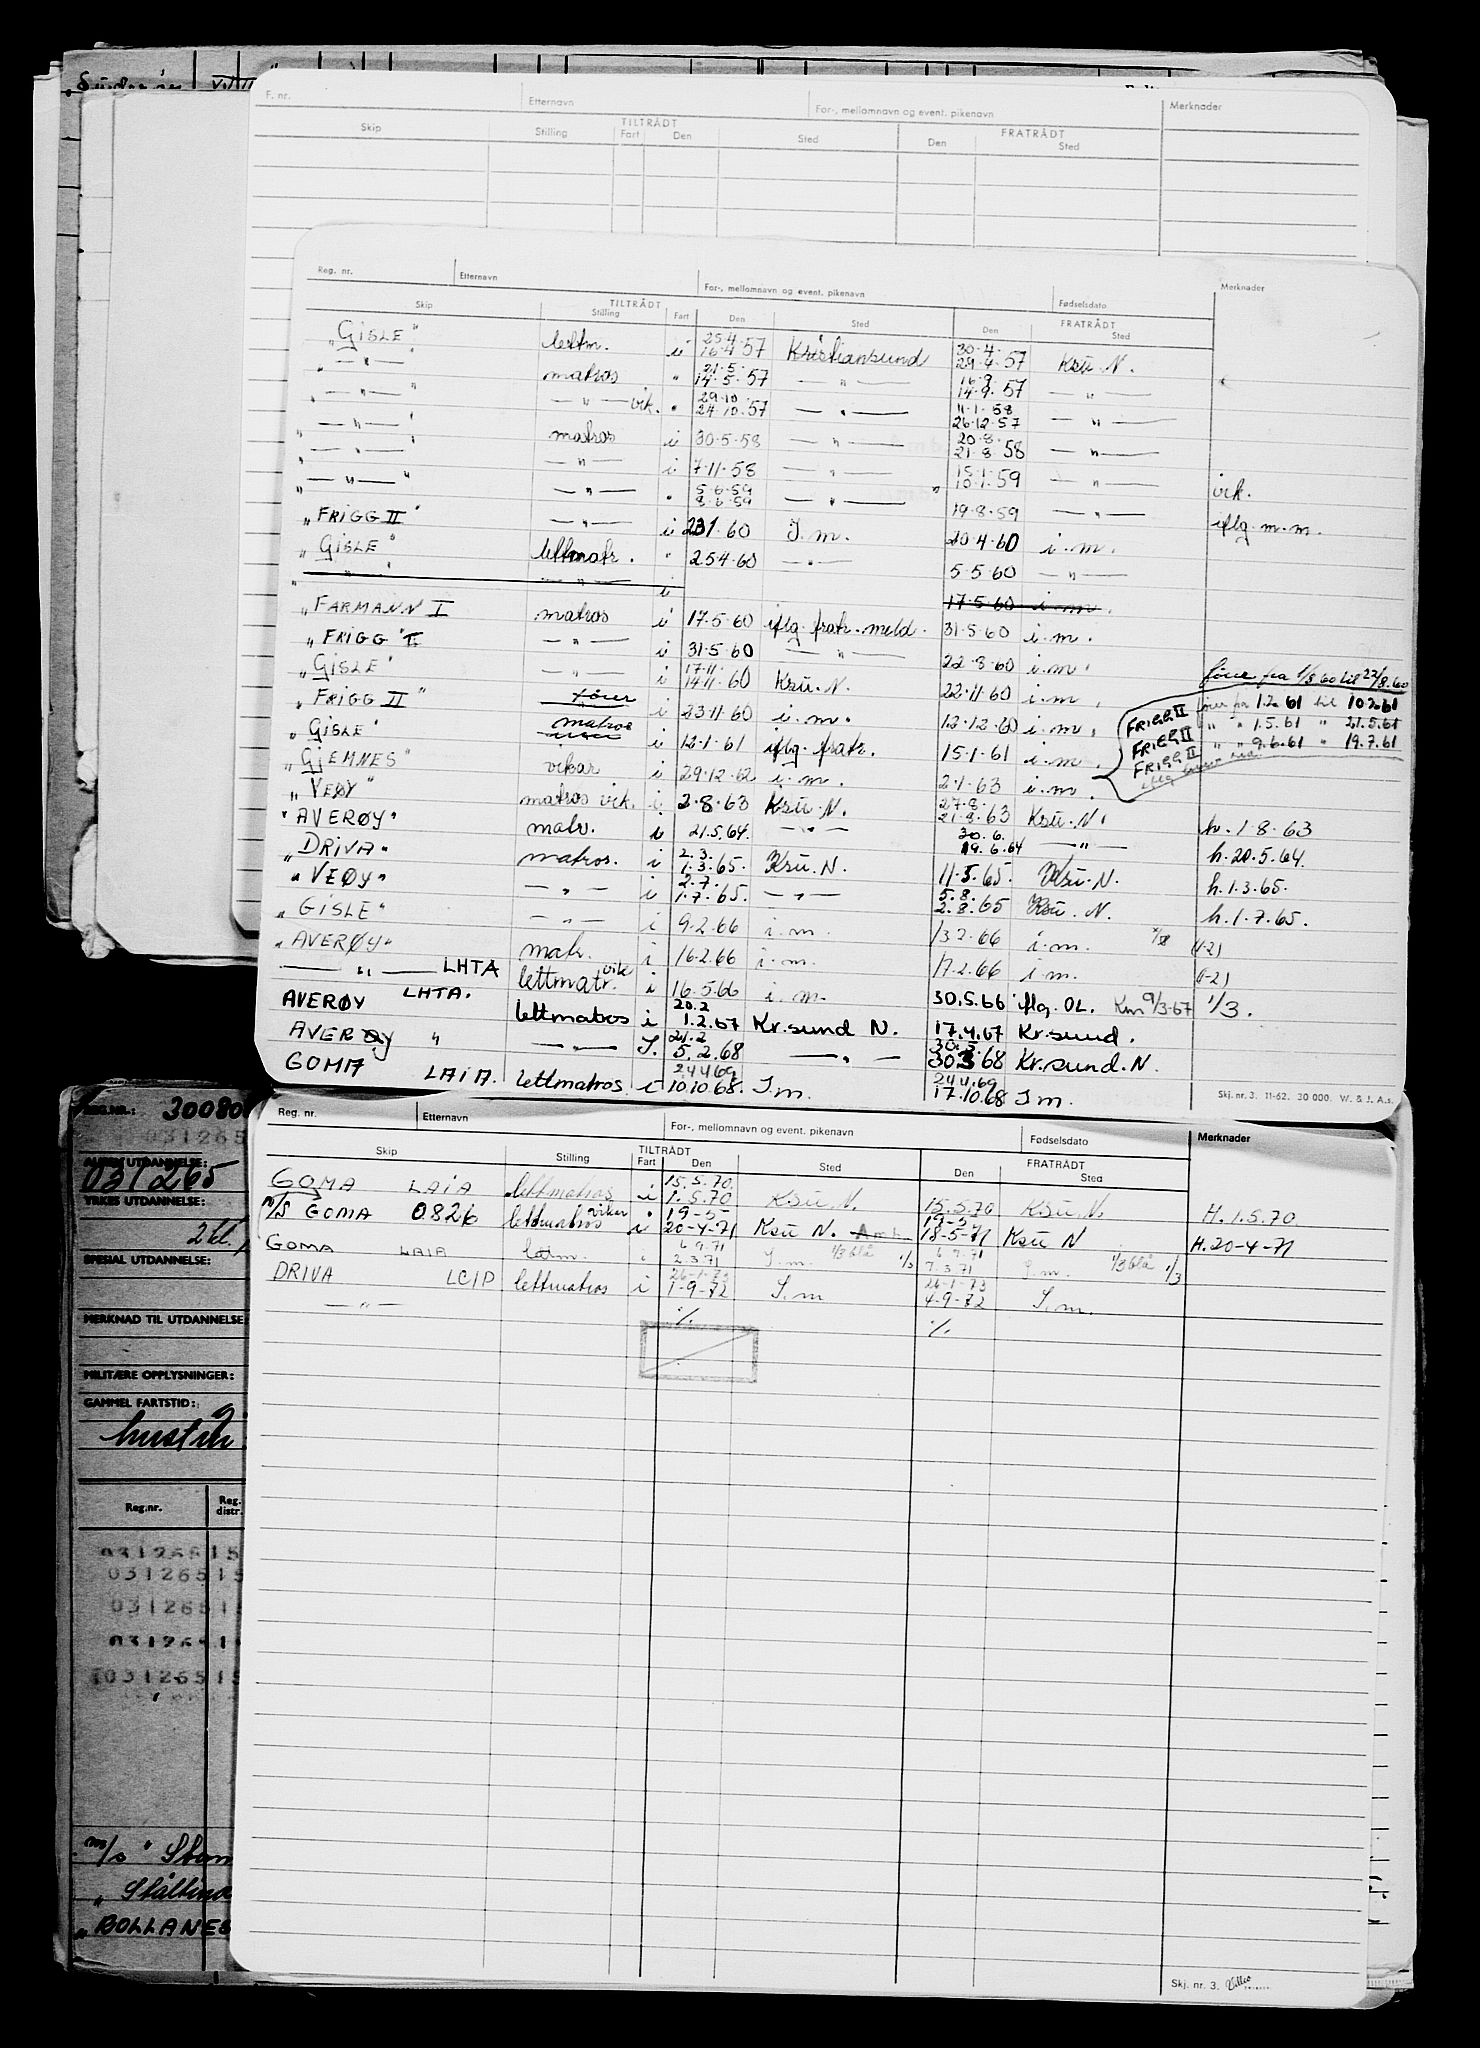 F. nr. Etternavn For-, mellomnavn og event. pikenavn Merknader
TILTRÅDT FRATRÅDT
Skip Stilling Fart Den Sted Den Sted
Reg. nr. Etternavn For-, mellomnavn og event. pikenavn Fødselsdato Merknader
TILTRÅDT FRATRÅDT
Skip Stilling Fart Den Sted Den Sted
"GISLE" lettm. i 25.4. 16.4.57 Kristiansund 30.4. 29.4.57 Ksu. N.
" — " — " matros " 21.5. 14.5.57 — " — 16.9. 14.9.57 — " —
" — " — " — " — vik. " 29.10. 24.10.57 — " — 11.1.58 26.12.57 — " —
" — " — " matros i 30.5.58 — " — 20.8. 21.8.58 — " —
" — " — " — " — i 7.11.58 — " — 15.1. 10.1.59 — " — vik.
" — " — " — " — " 5.6.59 8.6.59 — " — 19.8.59 — " — iflg. m.m.
"FRIGG II" — " — i 23.1.60 I.m. 20.4.60 i.m.
"GISLE" lettmatr. " 25.4.60 — " — 5.5.60 — " —
" — " — " — " — i 17.5.60 i.m.
"FARMANN I matros i 17.5.60 iflg. fratr. meld. 31.5.60 i.m.
"FRIGG II — " — i 31.5.60 — " — 22.8.60 i.m. fører fra 1/8 60 til 22/8.60
"GISLE" — " — i 17.11. 14.11.60 Ksu. N. 22.11.60 i.m.
"FRIGG II" fører matros i 23.11.60 i.m. 12.12.60 i.m. FRIGG II fører fra 1.2.61 til 10.2.61
FRIGG II " " 1.5.61 " 21.5.61
FRIGG II " " 9.6.61 " 19.7.61
"GISLE" i 12.1.61 iflg. fratr. 15.1.61 i.m.
"GJEMNES" vikar i 29.12.62 i.m. 2.1.63 i.m.
"VEØY" matros vik. i 2.8.63 Ksu. N. 27.8. 21.8.63 Ksu. N. h. 1.8.63
"AVERØY" matr. i 21.5.64. — " — 30.6. 19.6.64 — " — h. 20.5.64.
"DRIVA" matros. i 2.3. 1.3.65. Ksu. N. 11.5.65. Ksu. N. h. 1.3.65.
"VEØY" — " — i 2.7. 1.7.65. — " — 5.8. 2.8.65 Ksu. N. h. 1.7.65.
"GISLE" — " — i 9.2.66 i.m. 13.2.66 i.m.
"AVERØY" matr. i 16.2.66 i.m. 17.2.66 i.m.
— " — LHTA lettmatr. vik i 16.5.66 i.m. 30.5.66 iflg. OL. 9/3-67 1/3.
AVERØY LHTA. lettmatros i 20.2 1.2.67 Kr.sund N. 17.4.67 Kr.sund.
AVERØY " — " — I. 21.2 5.2.68 — " — 30.3.68 Kr.sund. N.
GOMA LAIA. lettmatros i 24469 10.10.68. I m. 24.4.69 17.10.68 I m.
Skj. nr. 3. 11-62. 30 000. W. & J. A.s.
REG.NR.: 300808
031265
031265
YRKES UTDANNELSE:
SPESIAL UTDANNELSE:
MERKNAD TIL UTDANNELSE:
MILITÆRE OPPLYSNINGER:
GAMMEL FARTSTID:
Reg.nr. Reg. distr.
03126515
03126515
0312651
0312651
03126515
m/s "
"
"BOLLANES
Reg. nr. Etternavn For-, mellomnavn og event. pikenavn Fødselsdato Merknader
TILTRÅDT FRATRÅDT
Skip Stilling Fart Den Sted Den Sted
GOMA LAIA lettmatros i 15.5.70. 1.5.70 Ksu. N. 15.5.70 Ksu. N. H. 1.5.70
m/s GOMA 0826 lettmatros vikar i 19-5- 20-4-71 Ksu N. 19-5- 18-5-71 Ksu N H. 20-4-71
GOMA LAIA i 6.9.71 2.3.71 I.m. 1/3 blå 1/3 6.9.71 7.3.71 I.m. 1/3 blå 1/3
DRIVA LCIP lettmatros i 26-1-73 1-9-72 I.m 26-1-73 4-9-72 I.m.
— " — %. %.
Skj. nr. 3.